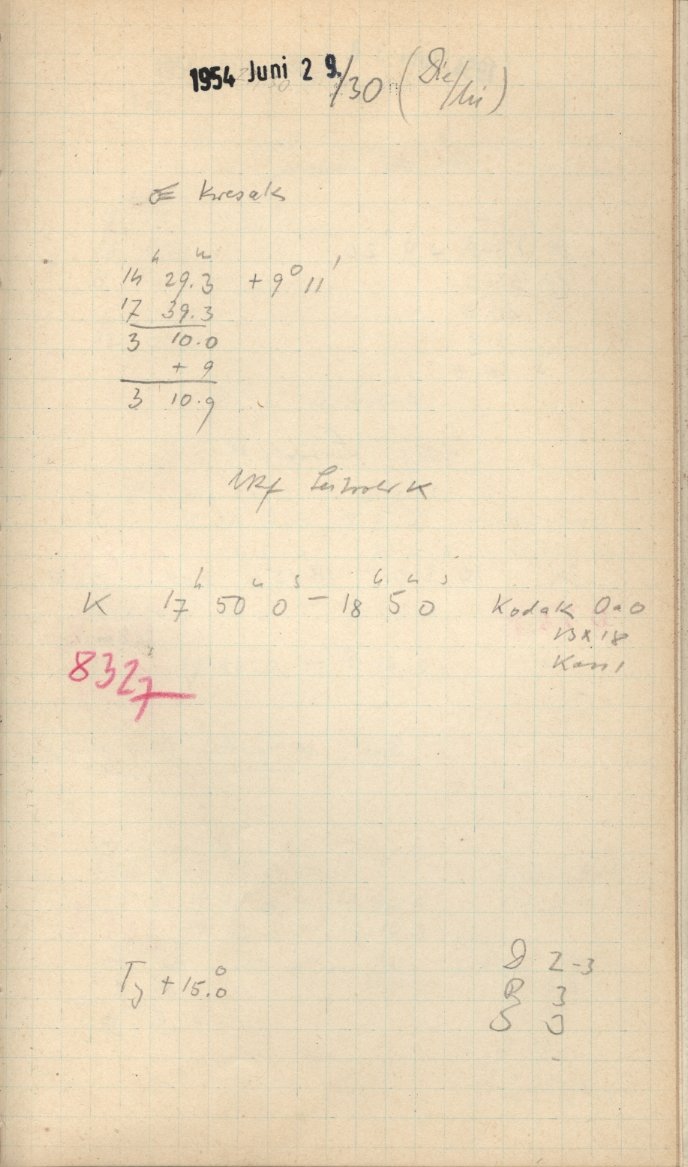 1954 Juni 29./30 (Die/Mi)
Kresak
14ʰ 29.3ᵐ + 9° 11'
17 39.3
3 10.0
+ 9
3 10.9
K 17ʰ 50ᵐ 0ˢ – 18ʰ 5ᵐ 0ˢ Kodak OaO
13 x 18
Kass 1
8327
T + 15.0°
D 2-3
R 3
S 3